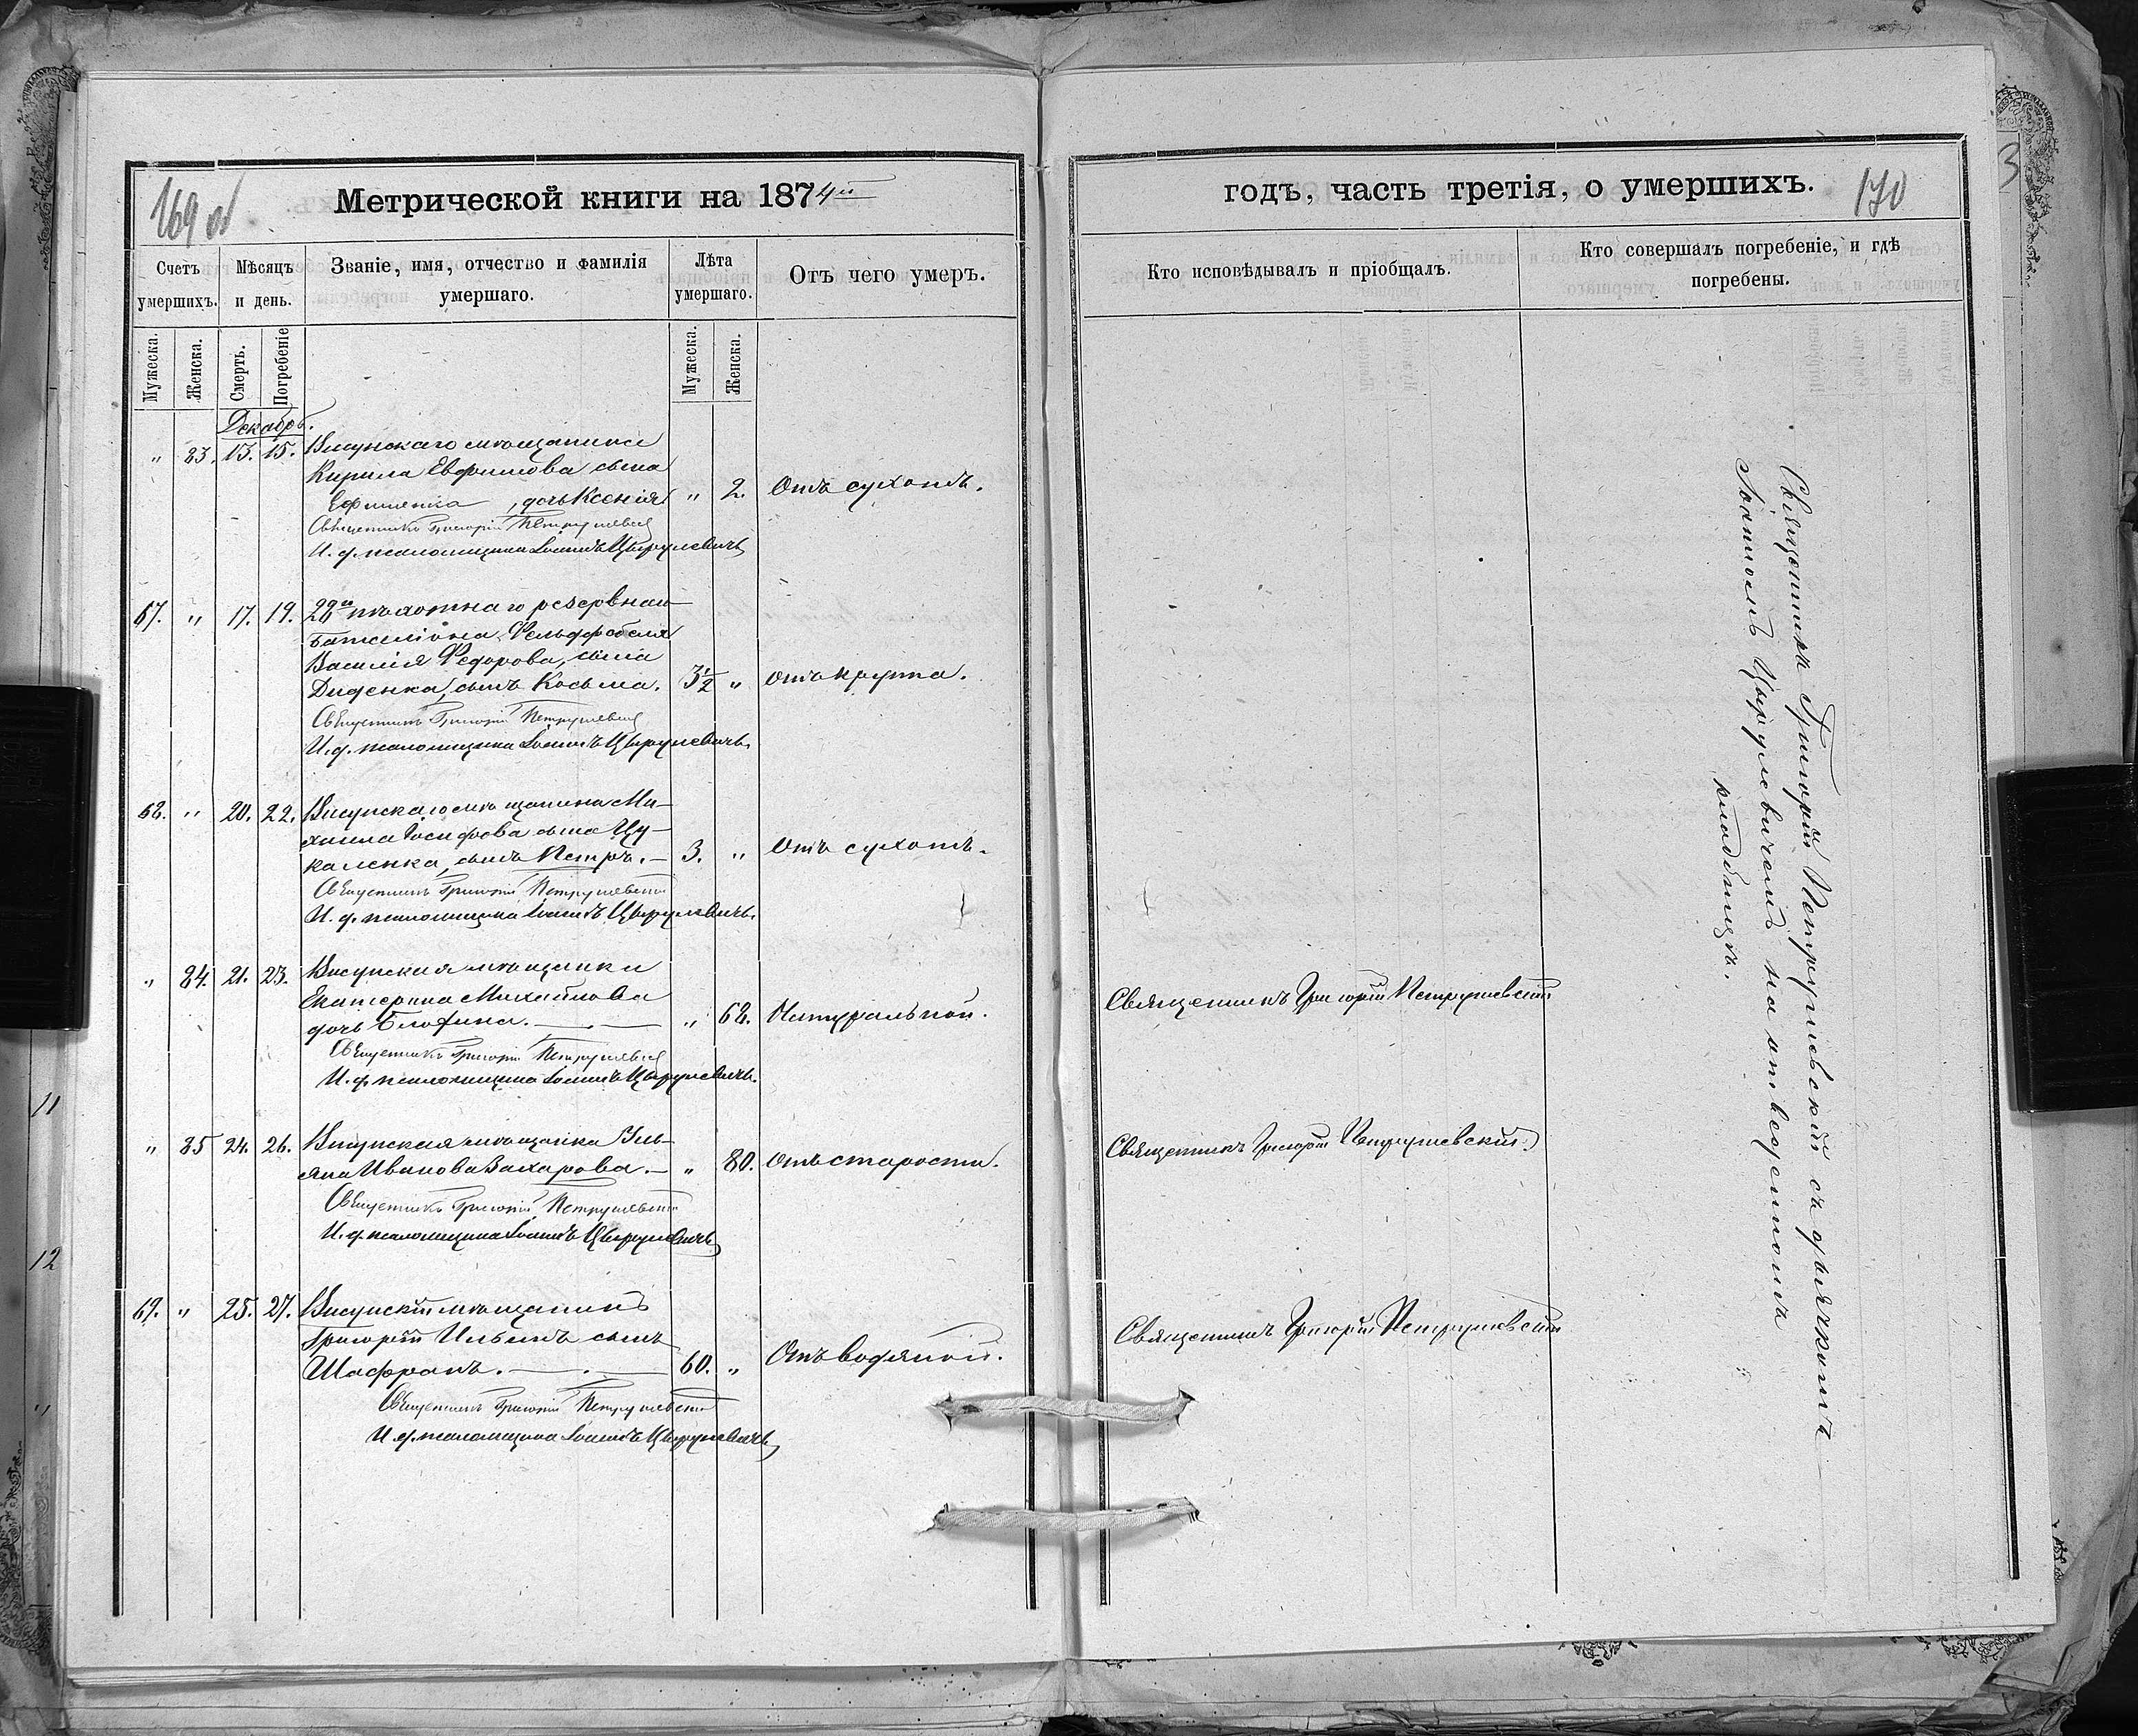 169 об
Метрической книги на 1874й
Счетъ умершихъ.
Мѣсяцъ и день.
Званіе, имя, отчество и фамилія умершаго.
Лѣта умершаго.
Отъ чего умеръ.
Мужеска.
Женска.
Смерть.
Погребеніе
Мужеска.
Женска.
Декабрь.
" 83. 13. 15. Висунскаго мѣщанина
Кирила Евфимова сына
Ефименка, дочь Ксенія " 2. Отъ сухотъ.
Священникъ Григорій Петрушевскій
И. д. псаломщика Іоаннъ Цырулевичъ
67. " 17. 19. 22го пѣхотнаго резервнаго
баталіона Фельдфебеля
Василія Федорова, сына
Диденка, сынъ Косьма. 3½ " Отъ крупа.
Священникъ Григорій Петрушевскій
И. д. псаломщика Іоаннъ Цырулевичъ.
68. " 20. 22. Висунскаго мѣщанина Ми-
хаила Іосифова сына Цу-
каленка, сынъ Петръ. 3. " Отъ сухотъ.
Священникъ Григорій Петрушевскій
И. д. псаломщика Іоаннъ Цырулевичъ.
" 84. 21. 23. Висунская мѣщанка
Екатерина Михайлова
дочь " 68. Натуральной.
Священникъ Григорій Петрушевскій
И. д. псаломщика Іоаннъ Цырулевичъ.
" 85 24. 26. Висунская мѣщанка Уль-
яна Иванова Захарова. " 80. Отъ старости.
Священникъ Григорій Петрушевскій
И. д. псаломщика Іоаннъ Цырулевичъ
69. " 25. 27. Висунскій мѣщанинъ
Григорій Ильинъ сынъ
Шафранъ. 60. " Отъ водяной.
Священникъ Григорій Петрушевскій
И. д. псаломщика Іоаннъ Цырулевичъ
годъ, часть третія, о умершихъ.
170
Кто исповѣдывалъ и пріобщалъ.
Кто совершалъ погребеніе, и гдѣ погребены.
Священникъ Григорій Петрушевскій
Священникъ Григорій Петрушевскій
Священникъ Григорій Петрушевскій
Священникъ Григорій Петрушевскій съ дьячкомъ
Іоанномъ Цырулевичемъ на отведенномъ
кладбищѣ.
3
11
12